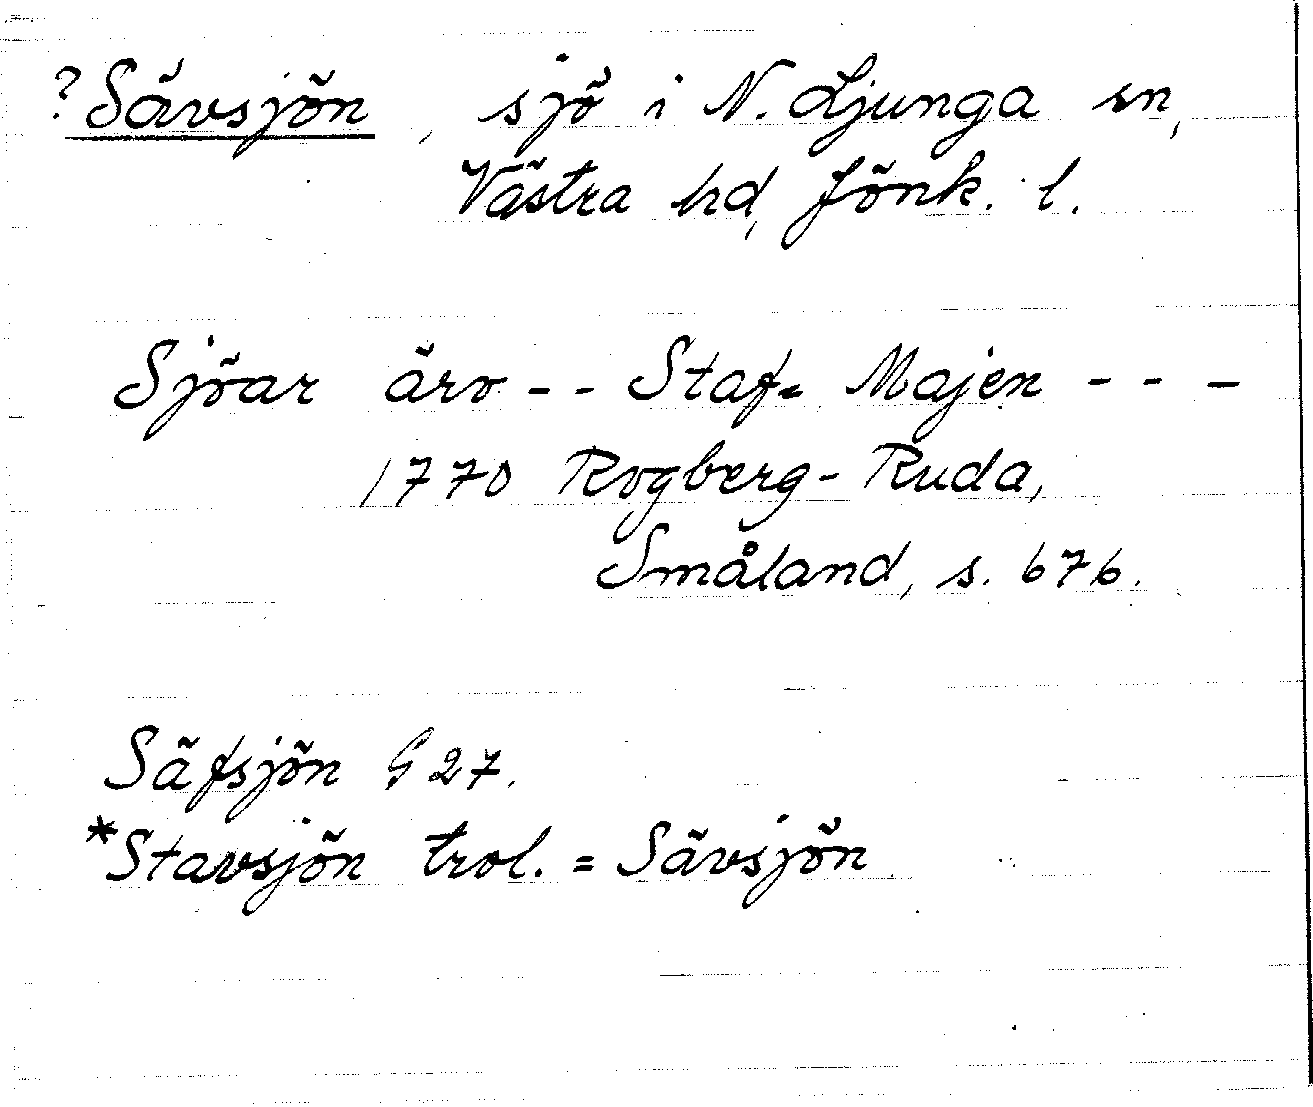 ? Sävsjön, sjö i N. Ljunga sn,
Västra hd, Jönk. l.
Sjöar äro - - Staf= Majen - - -
1770 Rogberg-Ruda,
Småland, s. 676.
Säfsjön G 27.
*Stavsjön trol. = Sävsjön